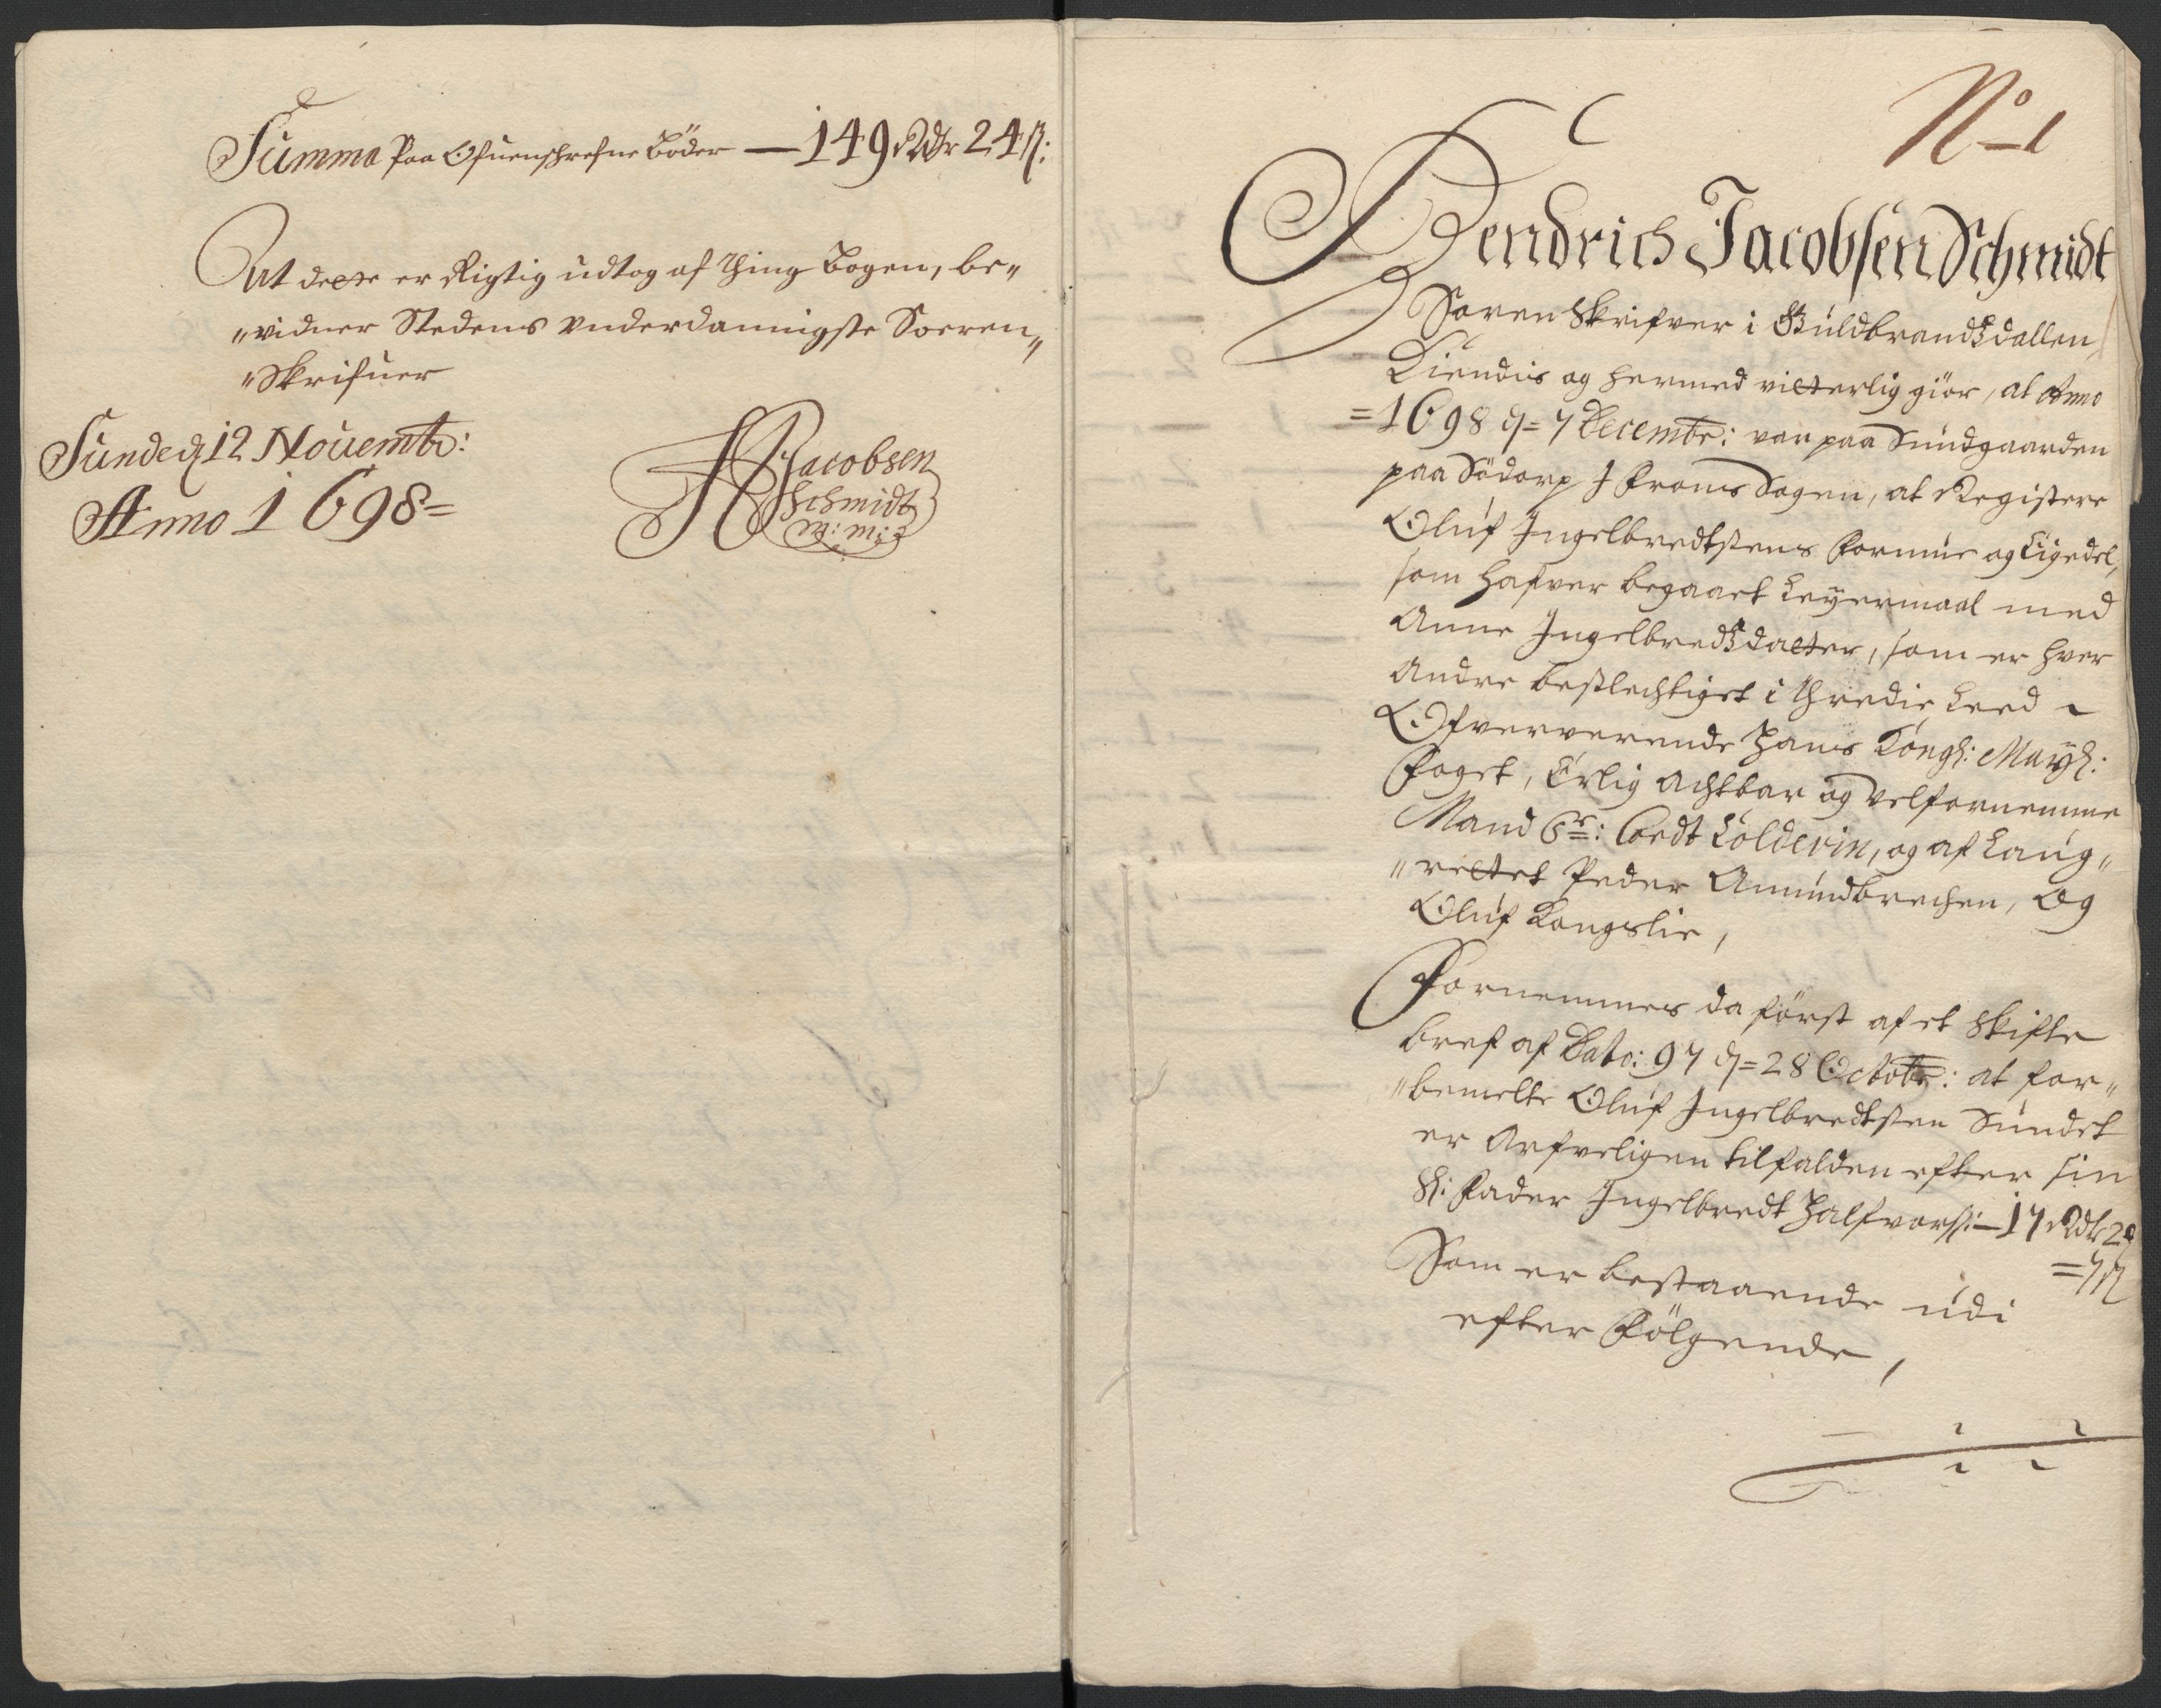 Summa paa Ofuenschrefne Böder — 149 Rdr 24 ß:
Att dette er Rigtig udtog af Thing Bogen, be„
„vidner Stedens Vnderdannigste Soeren„
„Skrifuer
Sunde d 12 Novembr:
Anno 1698=
HJacobsen
Schmidt
m: m:
No 1
Hendrich Jacobsen Schmidt
Soren Skrifver i Guldbrandsdallen,
Kiendis og hermed vitterlig giör, at Anno
=1698 d= 7 Decembr: var paa Sundgaarden
paa Södorp I Froms Sogen, at Registere
Oluf Ingelbredtsens Formue og Eigedel,
som hafver begaaet Leyermaal med
Anne Ingelbredsdatter, som er hver
Andre beslechtiget i Thredie Leed
Ofververende Hans Kongl: Mayts:
Foget, Erlig Achtbar og Velfornemme
Mand Sr: Cordt Coldevin, og af Laug„
„rettet Peder Amundbrechen, Og
Oluf Kongslie,
Fornemmes da först af et Skifte
bref af Dato: 97 d= 28 Octobr: at for„
„bemelte Oluf Ingelbredtsen Sundet
er Arfveligen tilfalden efter sin
Sl: Fader Ingelbredt Halfvors: — 17 Rdr 2
= 7 ß
Som er bestaaende udi
efter Fölgende,